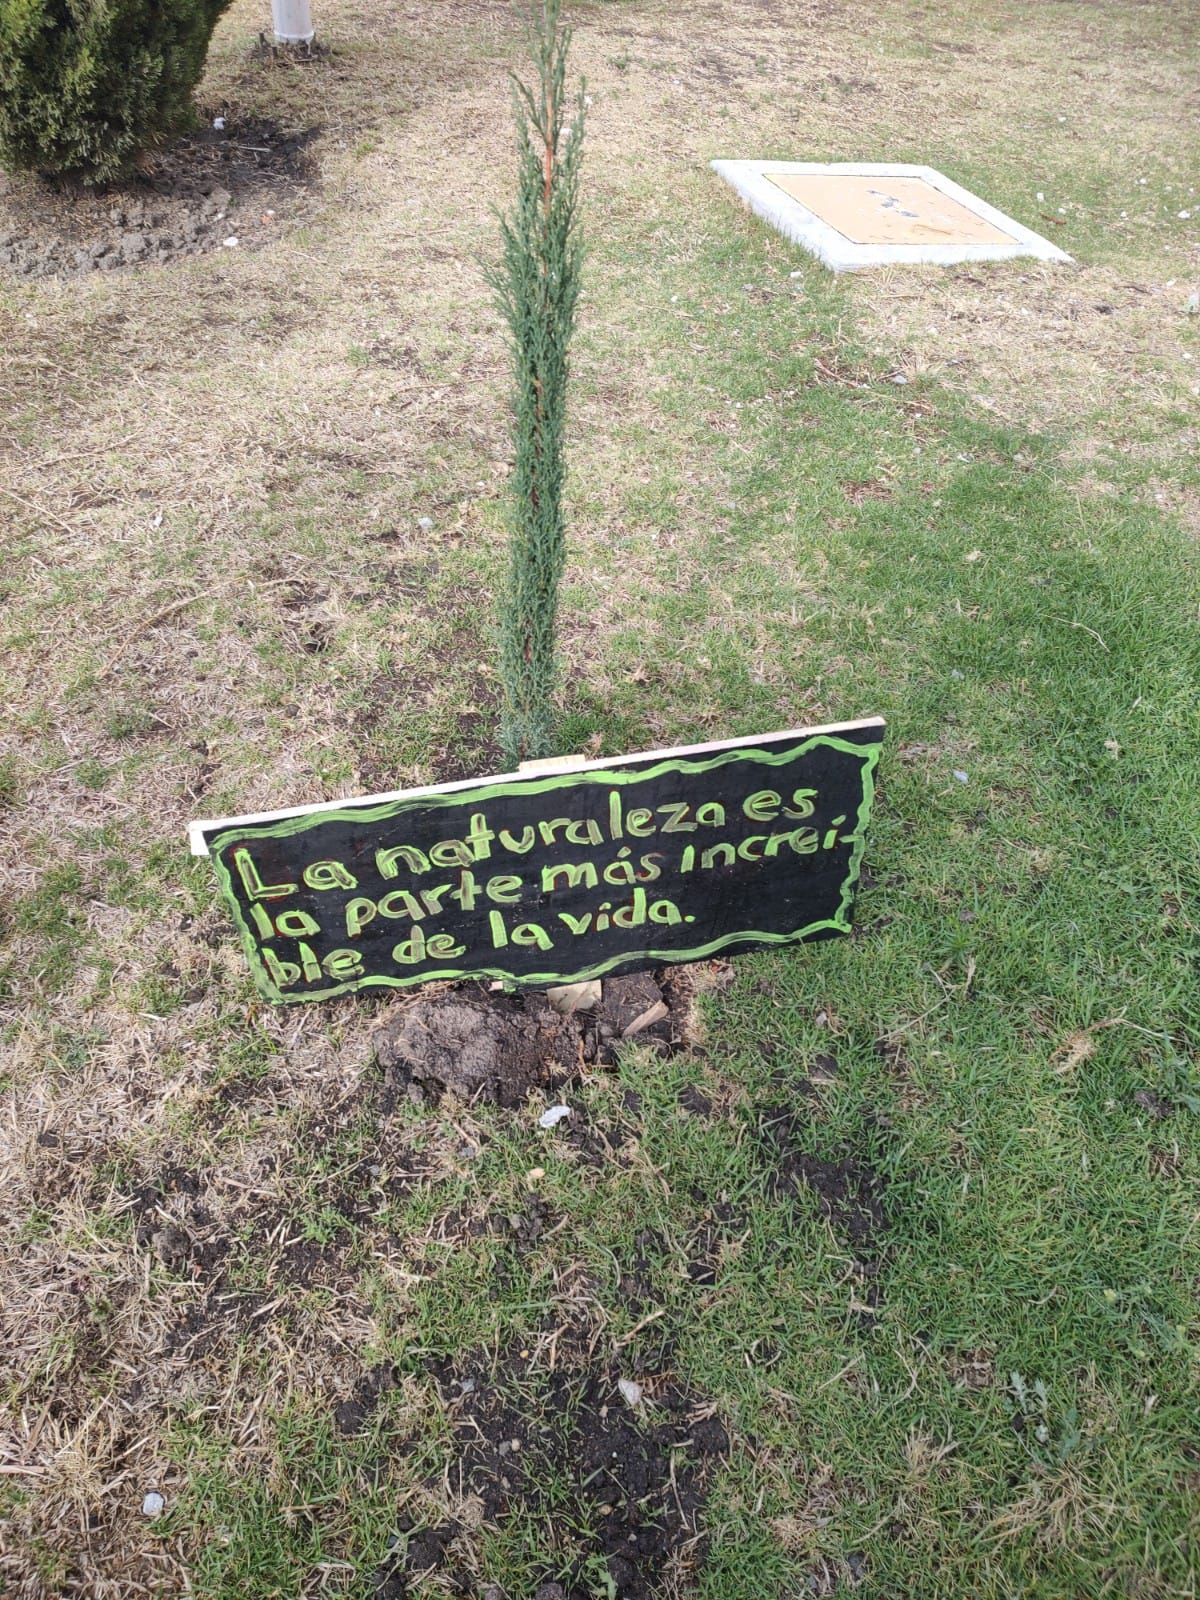 La naturaleza es
la parte más increí-
ble de la vida.